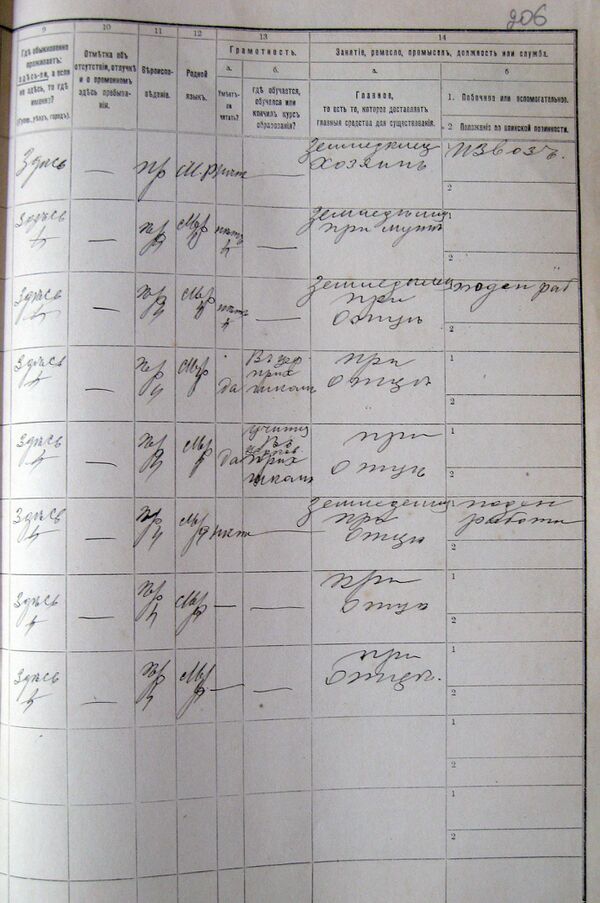 206
9 10 11 12 13 14
Гдѣ обыкновенно
проживаетъ:
здѣсь-ли, а если
не здѣсь, то гдѣ
именно?
(Губер., уѣздъ, городъ).
Отмѣтка объ
отсутствіи, отлучкѣ
и о временномъ
здѣсь пребыва-
ніи.
Вѣроиспо-
вѣданіе.
Родной
языкъ.
Грамотность.
а.
Умѣетъ-
ли
читать?
б.
гдѣ обучается,
обучался или
кончилъ курсъ
образованія?
Занятіе, ремесло, промыселъ, должность или служба.
а.
Главное,
то есть то, которое доставляетъ
главныя средства для существованія.
б
1. Побочное или вспомогательное.
2 Положеніе по воинской повинности.
Здѣсь — пр — Земледѣлец
хозяинъ
извозъ.
2
Здѣсь — пр нѣтъ — Земледѣлица
при мужѣ
1
2
Здѣсь — пр нѣтъ Земледѣлец
при
отцѣ
поден раб
2
Здѣсь — пр да
прих
школѣ
при
отцѣ
1
2
Здѣсь — пр да
учится
въ
прих
школѣ
при
отцѣ
1
2
Здѣсь — пр нѣт — Земледѣлец
при
отцѣ
поден
работы
2
Здѣсь — пр — — при
отцѣ
1
2
Здѣсь — пр — — при
отцѣ.
1
2
1
2
1
2